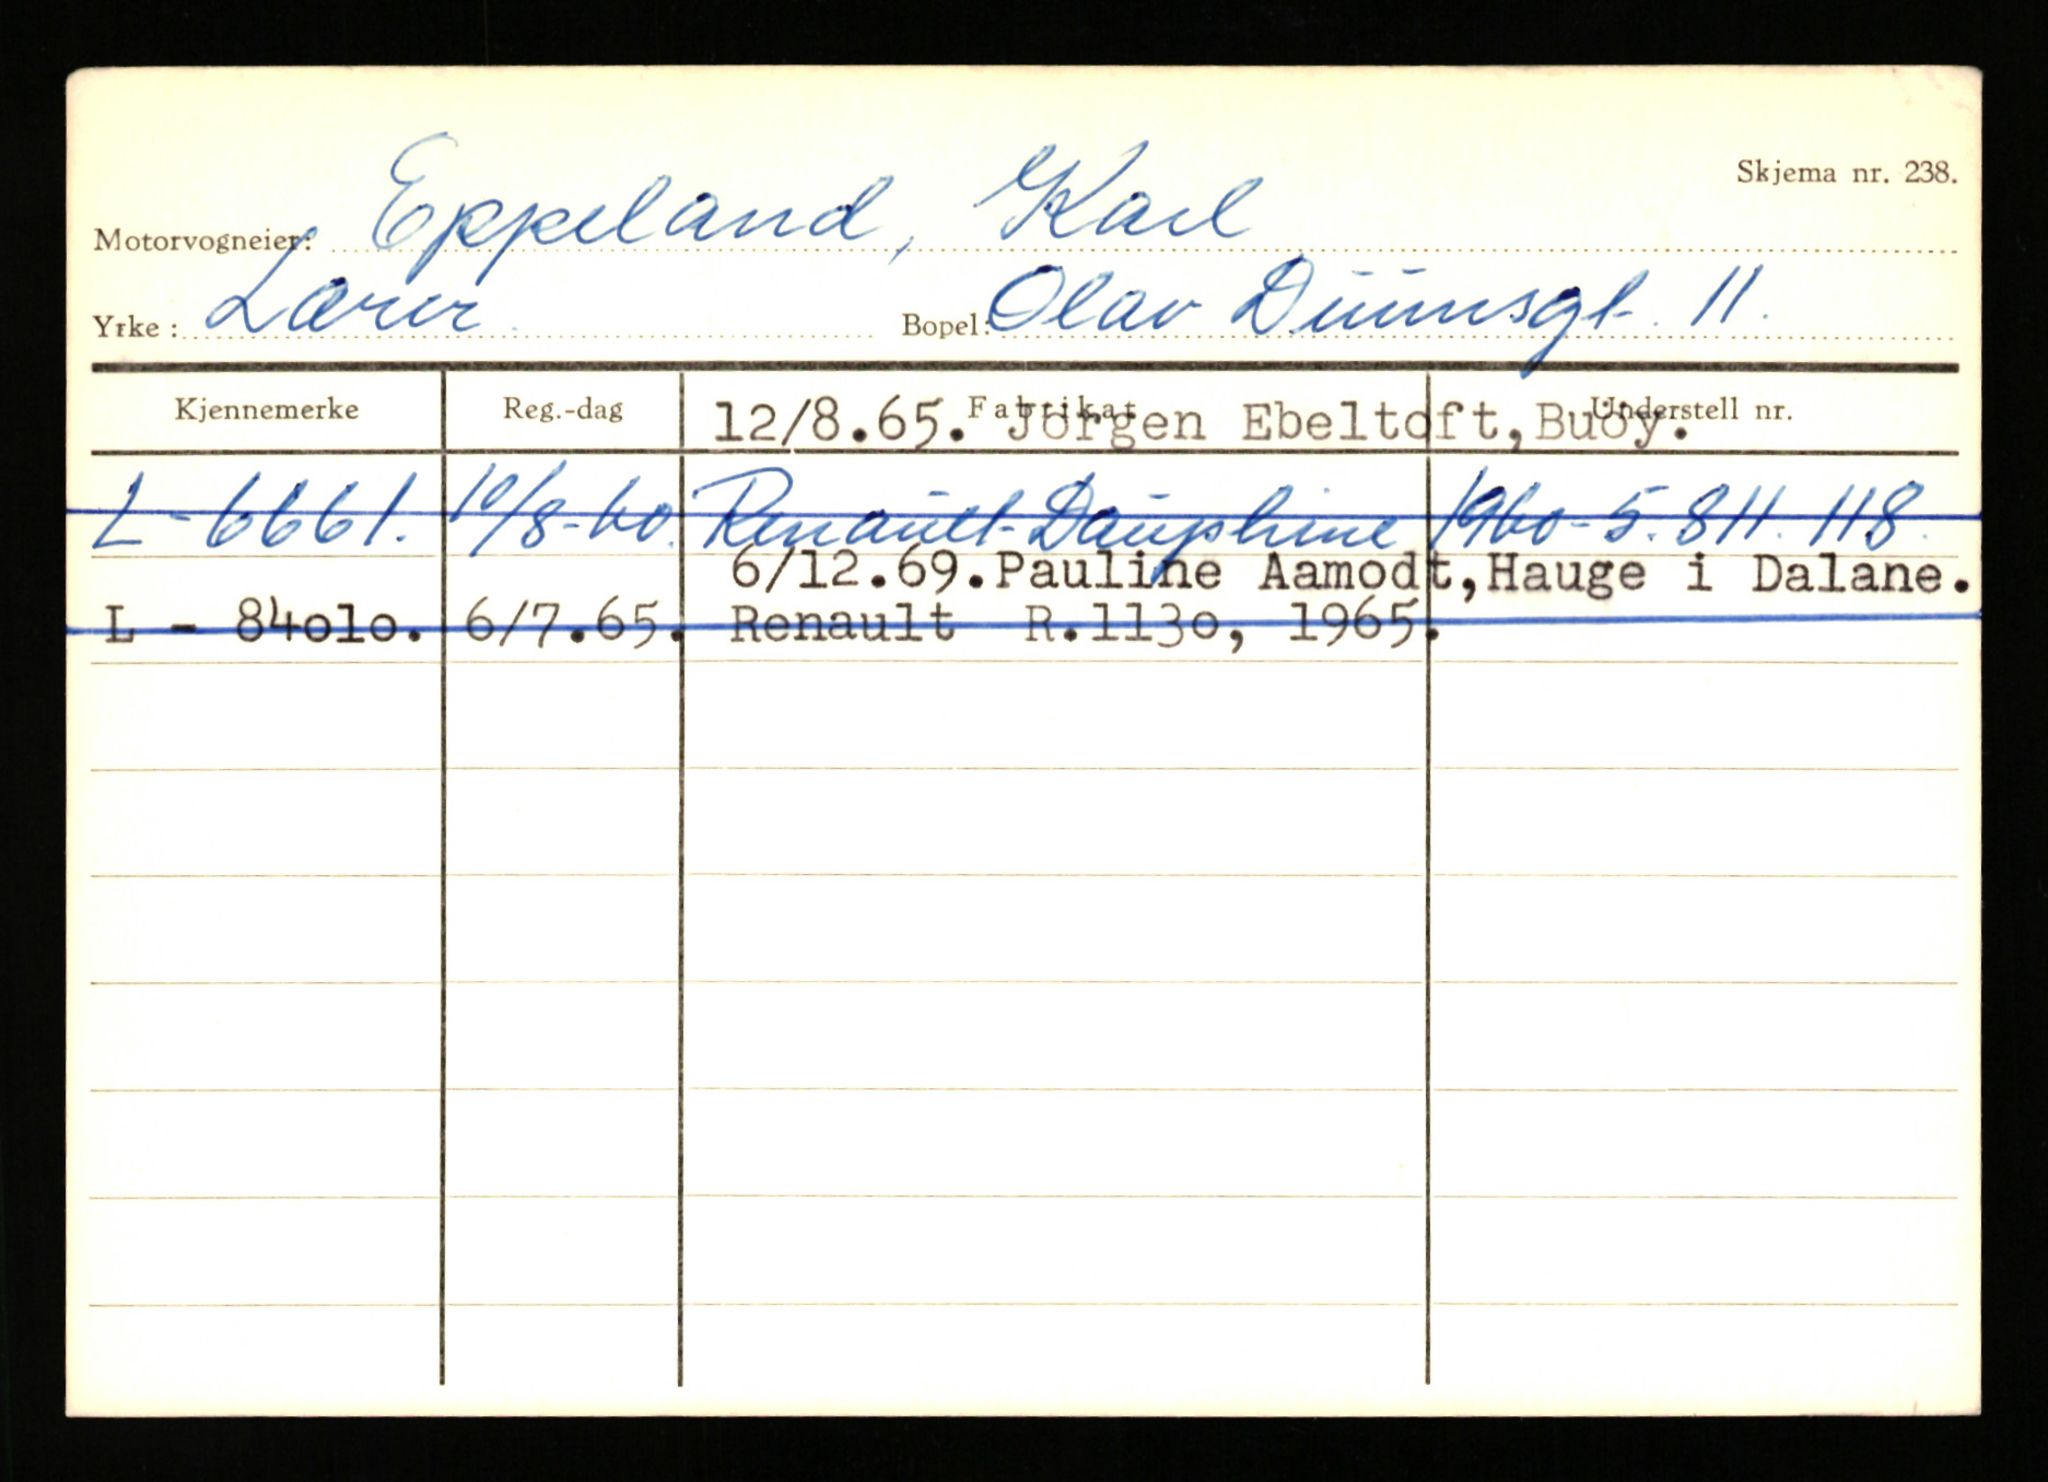 Skjema nr. 238.
Motorvogneier: Eppeland, Karl
Yrke: Lærer Bopel: Olav Duunsgt. 11.
Kjennemerke Reg.-dag Fabrikat Understell nr.
12/8.65. Jörgen Ebeltoft,Buöy.
L - 6661. 10/8-60. Renault-Dauphine 1960-5.811.118.
6/12.69.Pauline Aamodt,Hauge i Dalane.
L - 84010. 6/7.65. Renault R.1130, 1965.